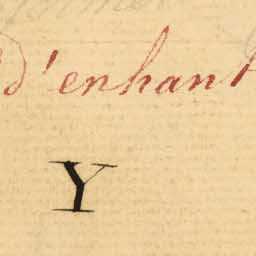 d'enhant
Y